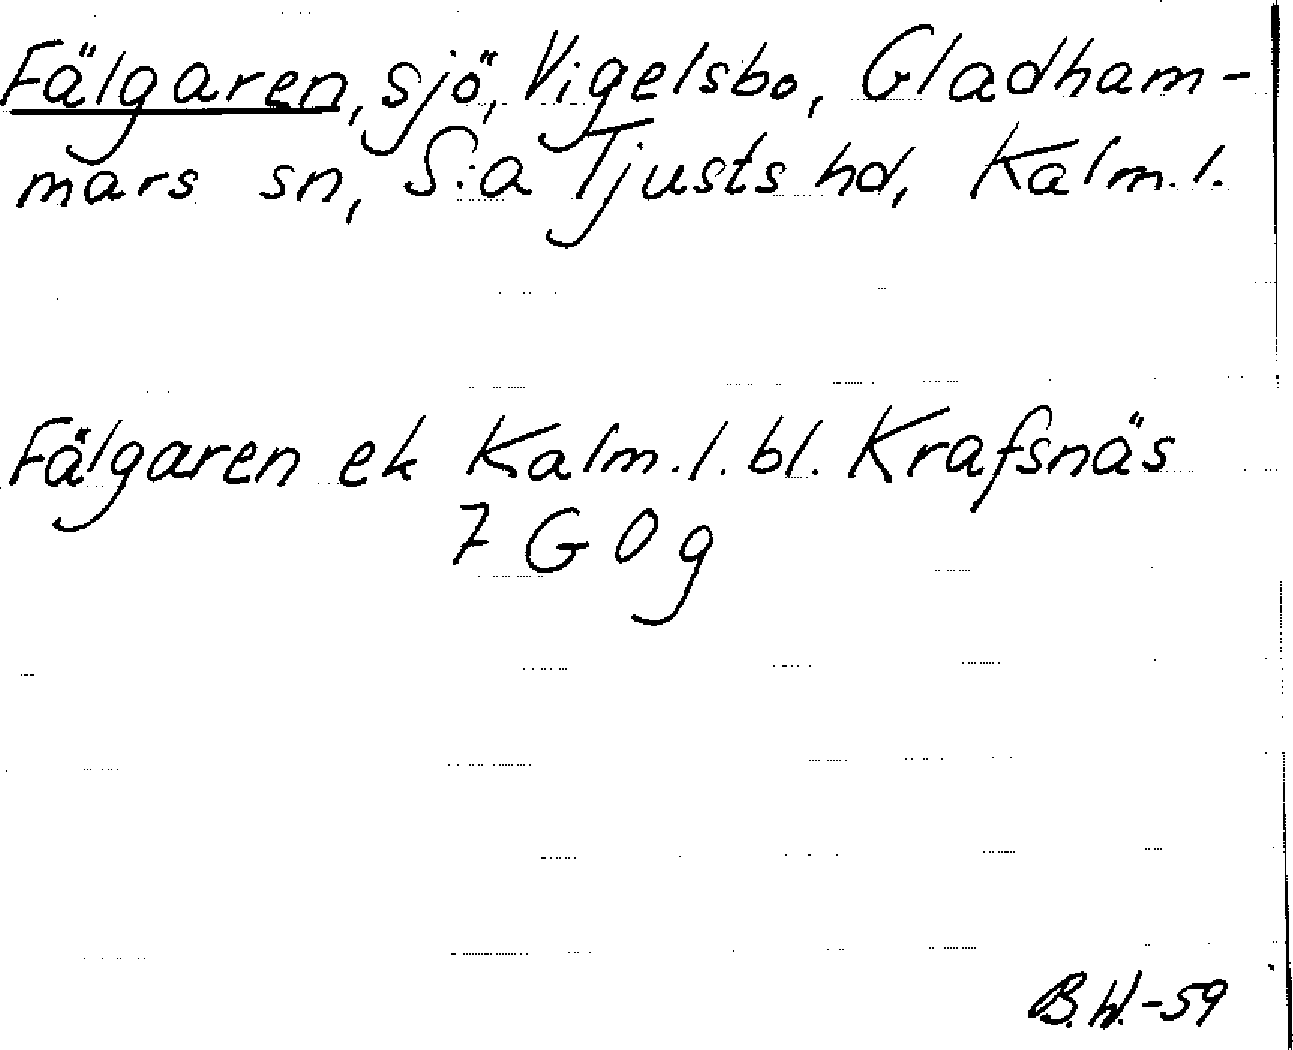 Fälgaren, sjö, Vigelsbo, Gladham-
mars sn, S:a Tjusts hd, Kalm.l.
Fälgaren ek Kalm.l.bl. Krafsnäs
7 G 0 g
B.W.-59